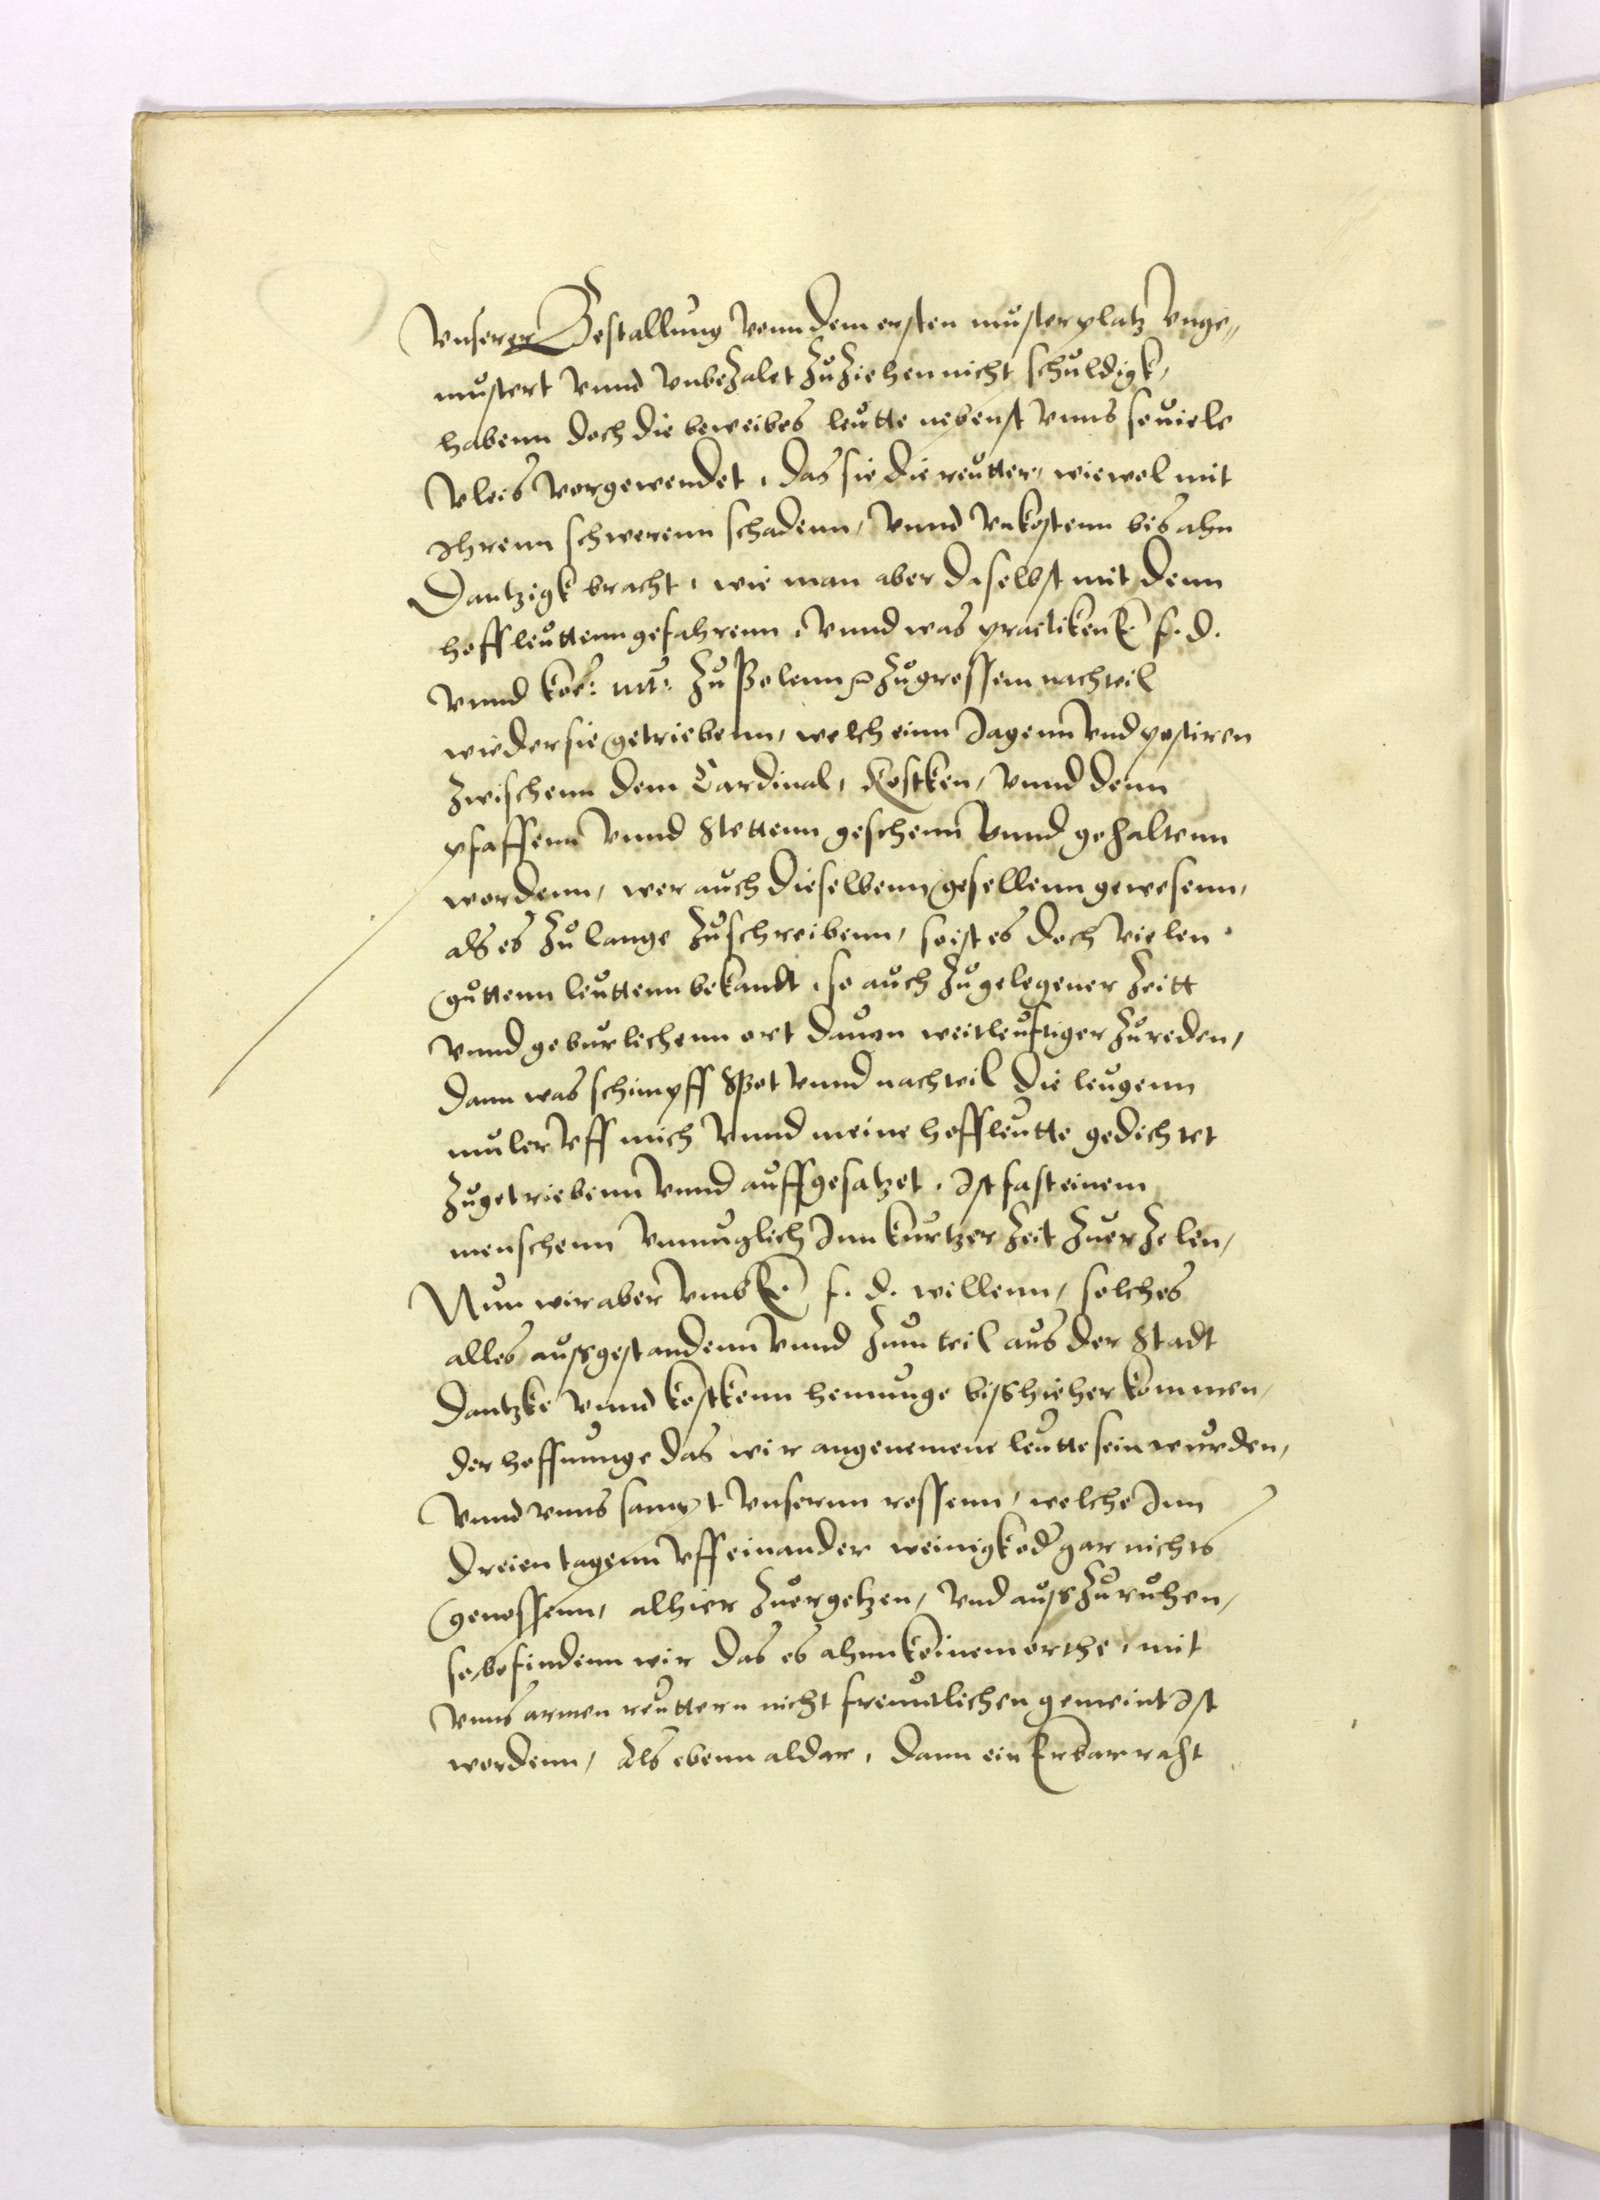 Unserer Bestallung vonn dem ersten musterplatz Unge„
mustert vnnd vnbezalet zuziehen nicht schuldigk,
habenn doch die beweibes leutte nebenst vnns souiele
Vleis vorgewendet, das sie die reutter, wiewol mit
Ihrenn schwerenn schadenn, vnnd vnkostenn bis ahn
Dantzigk bracht, wie man aber daselbst mit denn
hoffleuttenn gefahrenn, vnnd was practiken E. f. d.
vnnd koe: mt: zu Polenn zugrossem nachteil
wiedersie getriebenn, welch einn Jagenn vnd postiren
zwischenn dem Cardinal, Kostken, vnnd denn
pfaffenn vnnd Stettenn geschenn vnnd gehaltenn
wordenn, wer auch dieselbenn gesellenn gewesenn,
als es zu lange zuschreibenn, so ist es doch vielen
guttenn leuttenn bekandt, so auch zugelegener Zeitt
vnnd geburlichenn ort dauon weitleuftiger zureden,
dann was schimpff Spot vnnd nachteil die leugenn
muler vff mich vnnd meine hoffleutte gedichtet
zugetriebenn vnnd auffgesatzet, Ist fast einem
menschenn vnmuglich Inn kurtzer Zeit zuerzelen,
Nun wir aber vmb E. f. d. willenn, solches
alles aussgestandenn vnnd zum teil aus der Stadt
Dantzke vnnd kostkenn hemunge biss hieher kommen,
der hoffnunge das wir angenemene leutte sein wurden,
vnnd vnns sampt vnsernn rossenn, welche Inn
dreien tagenn vff einander weinigk od gar nichts
genossenn, alhier zuergetzen, vnd auss zuruhen,
so befindenn wir das es ahnn keinem orthe, mit
vnns armen reuttern nicht freuntlichen gemeint Ist
wordenn, als ebenn aldar, dann ein Erbar raht